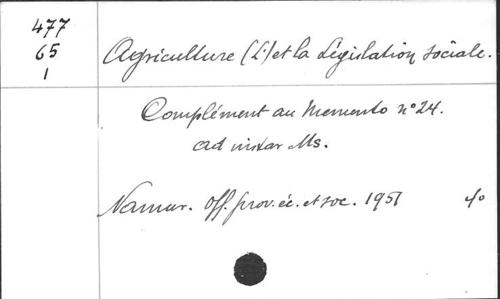 477
65
1
Agriculture (L') et la Législation sociale.
Complément au Memento n° 24.
ad instar Ms.
Namur. Off. prov. éc. et soc. 1951 4°